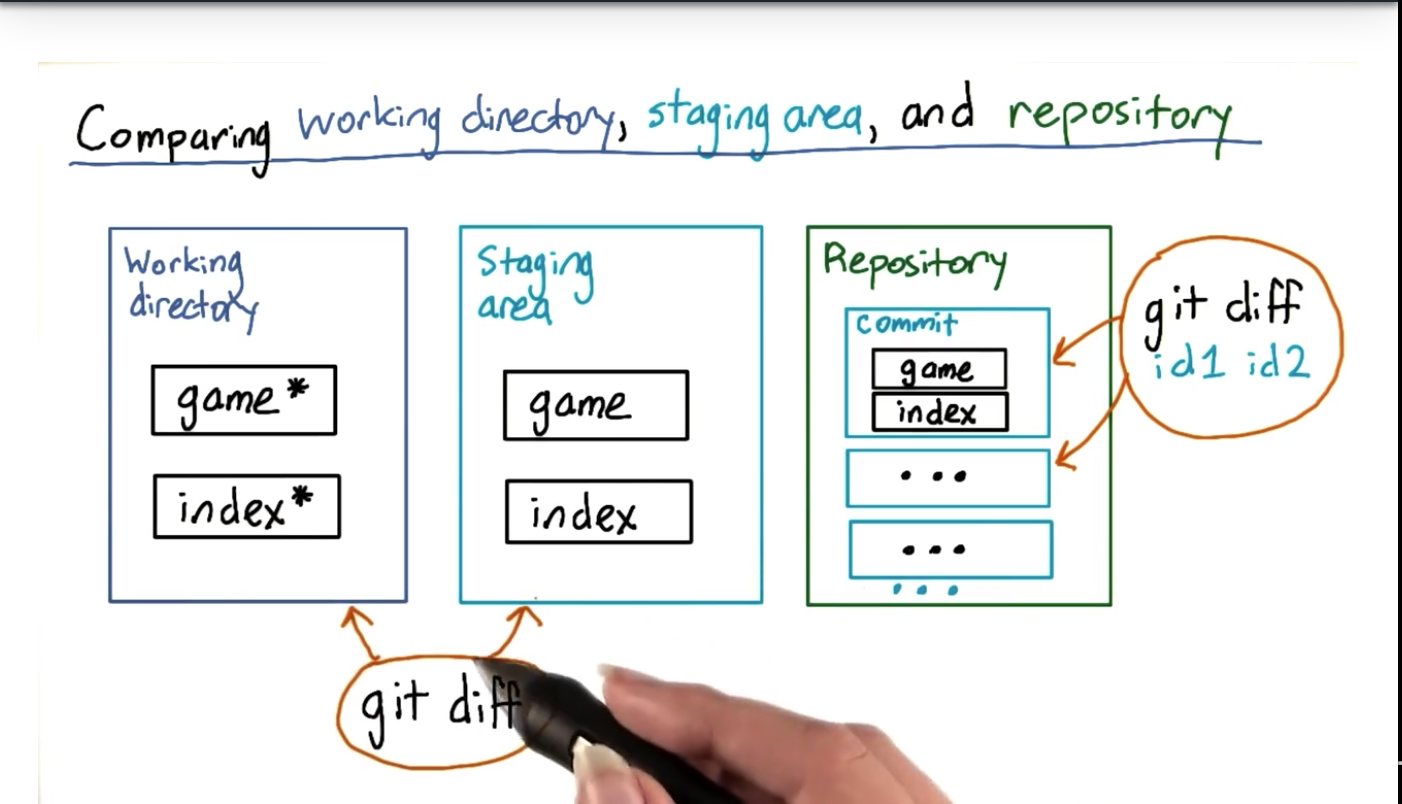 Comparing working directory, staging area, and repository
Working
directory
game*
index*
Staging
area
game
index
Repository
commit
game
index
...
...
...
git diff
id1 id2
git diff